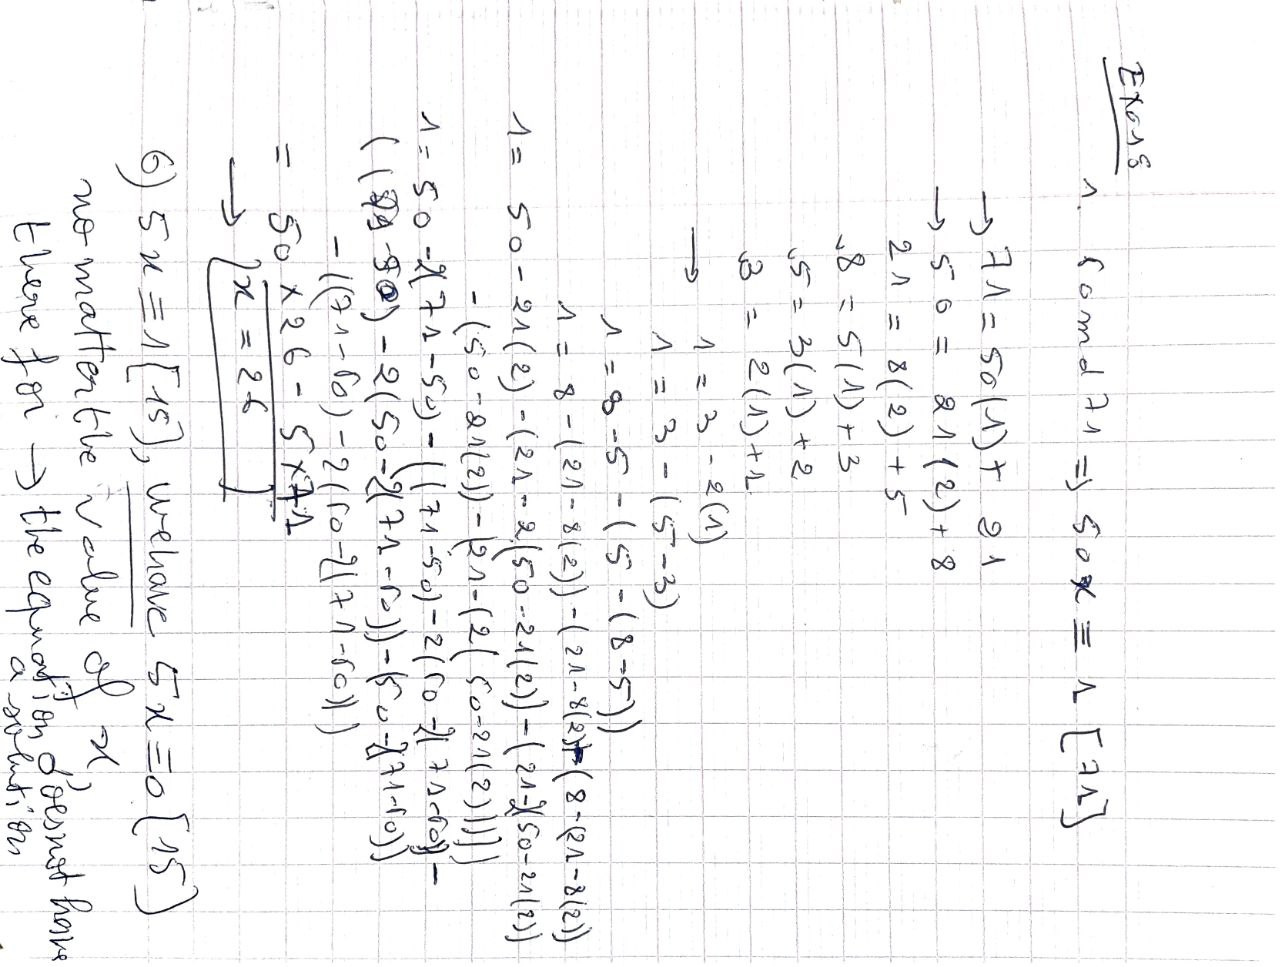 Exo18
1. 50 and 71 => 50x ≡ 1 [71]
→ 71 = 50(1) + 21
→ 50 = 21(2) + 8
21 = 8(2) + 5
8 = 5(1) + 3
5 = 3(1) + 2
3 = 2(1) + 1
→ 1 = 3 - 2(1)
1 = 3 - (5 - 3)
1 = 8 - 5 - (5 - (8 - 5))
1 = 8 - (21 - 8(2)) - (21 - 8(2) - (8 - (21 - 8(2))
1 = 50 - 21(2) - (21 - 2(50 - 21(2)) - (21 - 2(50 - 21(2))
- (50 - 21(2)) - (21 - (2(50 - 21(2))))
1 = 50 - 2(71 - 50) - ((71 - 50) - 2(50 - 2(71 - 50)) -
((71 - 50) - 2(50 - 2(71 - 50)) - (50 - 2(71 - 50))
- ((71 - 50) - 2(50 - 2(71 - 50))
= 50 × 26 - 5 × 71
→ x = 26
6) 5x ≡ 1 [15], we have 5x ≡ 0 [15]
no matter the value of x,
there for → the equation doesnot have
a solution